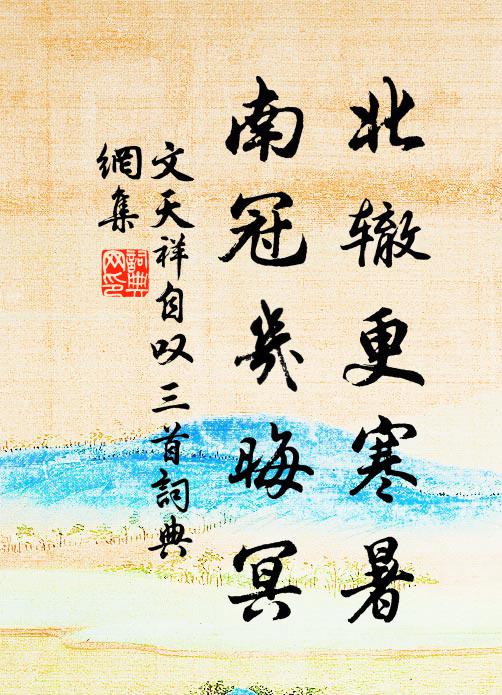 北辙更寒暑
南冠幾晦冥
文天祥自叹三首詞典
網集
詞典
网印